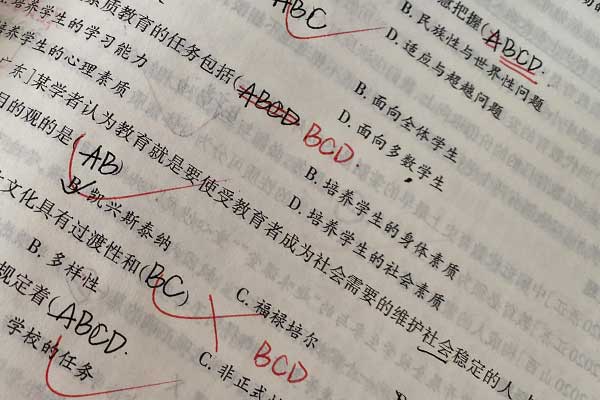 ABC
意把握(ABCD.
B. 民族性与世界性问题
D. 适应与超越问题
B. 面向全体学生
D. 面向多数学生
素质教育的任务包括(ABCD BCD.
培养学生的学习能力 B. 培养学生的身体素质
培养学生的心理素质 D. 培养学生的社会素质
广东]某学者认为教育就是要使受教育者成为社会需要的维护社会稳定的人
目的观的是(AB)
B. 凯兴斯泰纳 C. 福禄培尔
文化具有过渡性和(BC) BCD
B. 多样性 C. 非正式
规定着(ABCD.
学校的任务